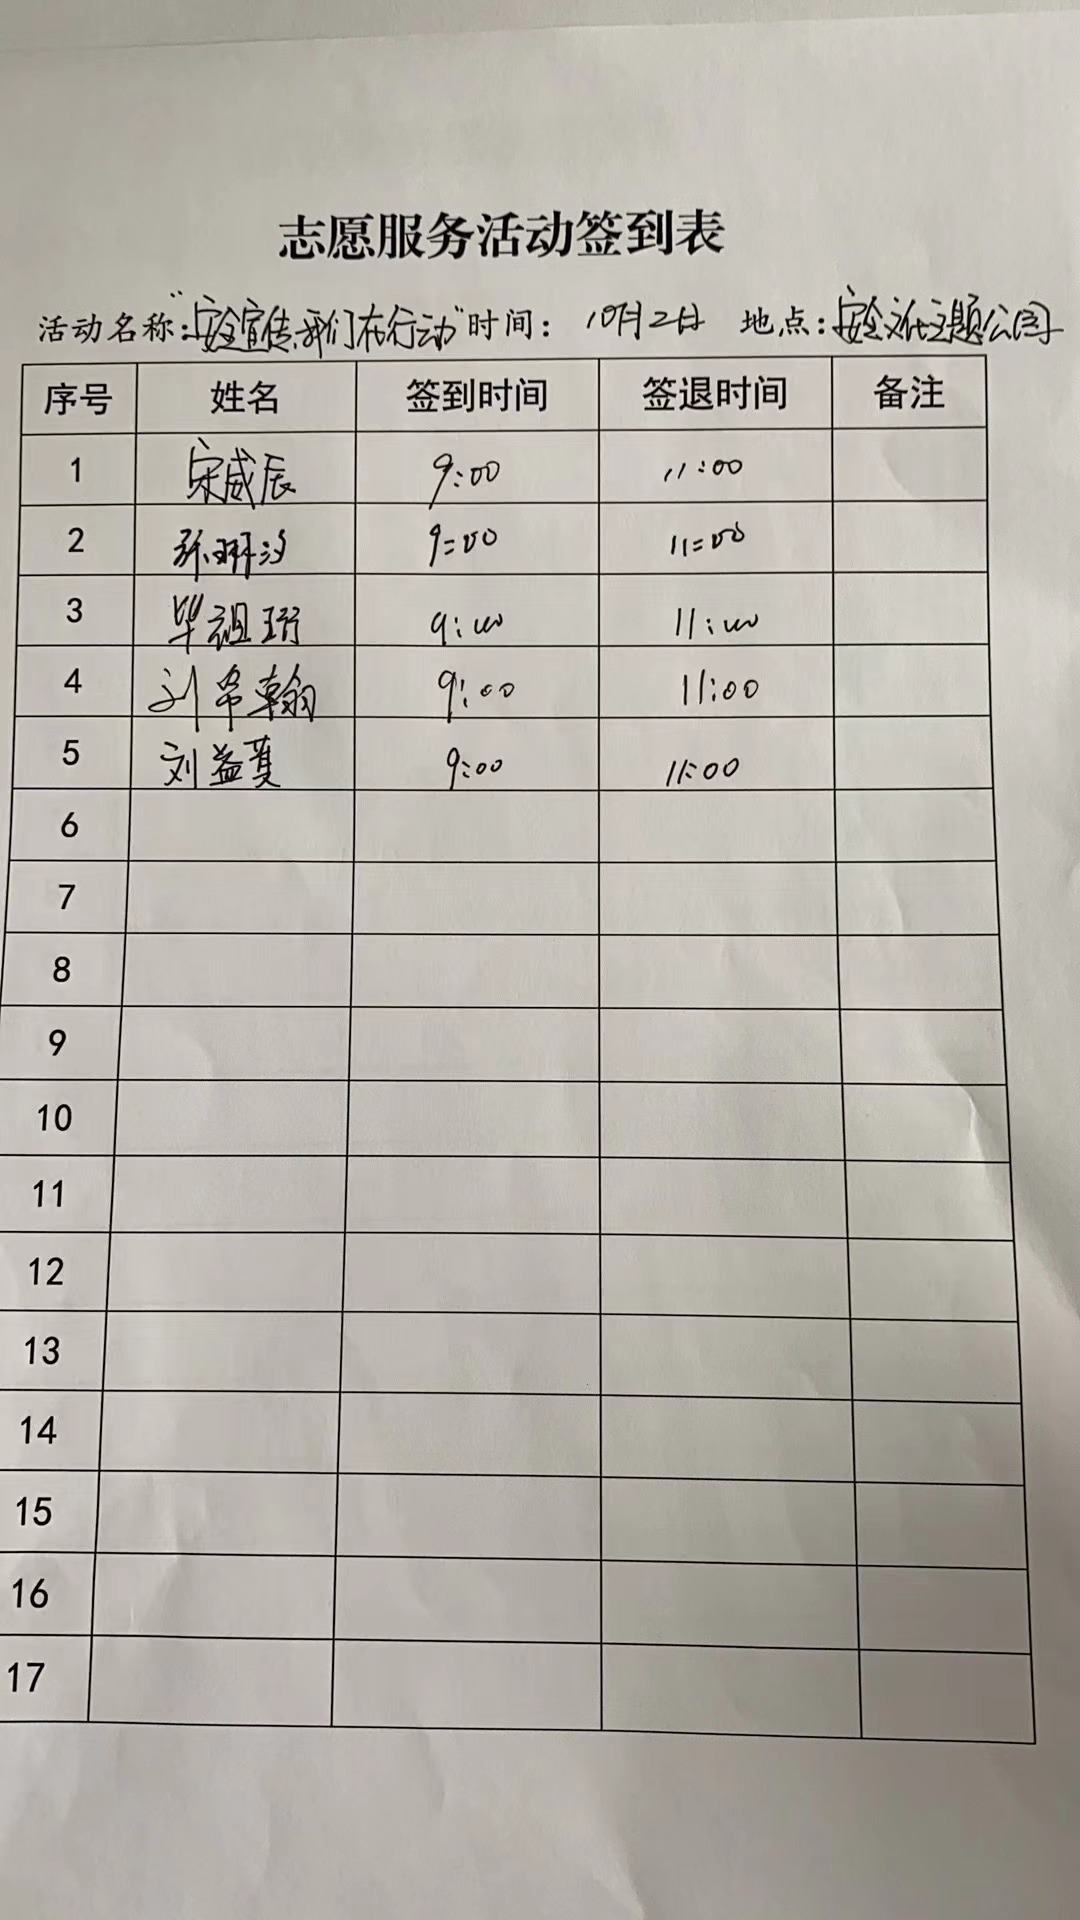 志愿服务活动签到表
活动名称:"安全宣传,我们在行动" 时间: 10月2日 地点:安全文化主题公园
序号 姓名 签到时间 签退时间 备注
1 宋威辰 9:00 11:00
2 9:00 11:00
3 毕祖珩 9:00 11:00
4 刘希翰 9:00 11:00
5 刘益 9:00 11:00
6
7
8
9
10
11
12
13
14
15
16
17